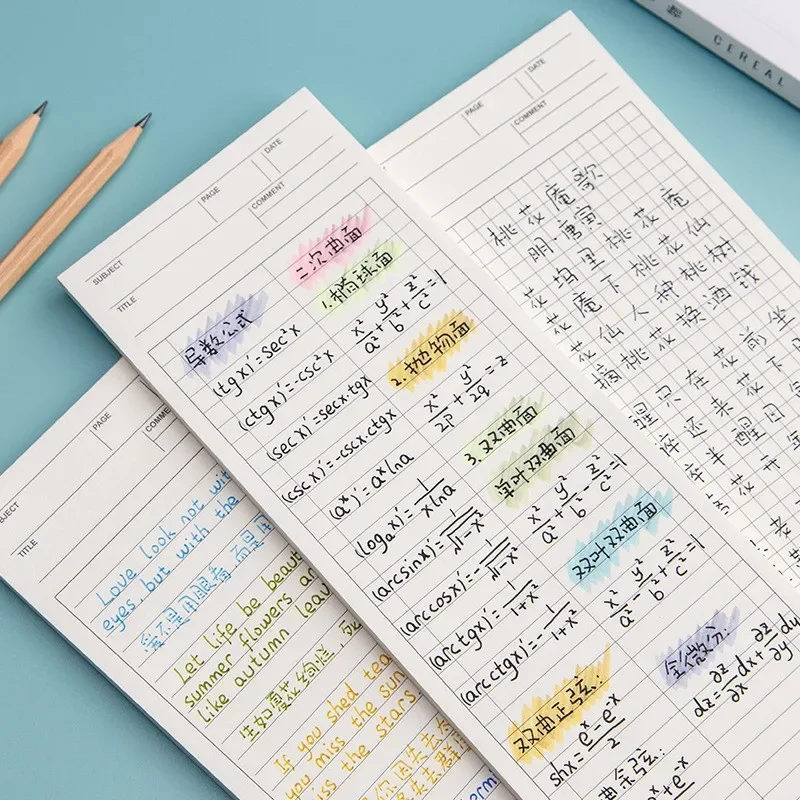 CEREAL
PAGE
DATE
COMMENT
桃花庵歌
明·唐寅
花坞里桃花庵
花庵下桃花仙
花仙人种桃树
摘桃花换酒钱
醒只在花前坐
还来花下
半醒日
花开
SUBJECT
PAGE
DATE
COMMENT
TITLE
导数公式
(tgx)′=sec²x
(ctgx)′=-csc²x
(secx)′=secx·tgx
(cscx)′=-cscx·ctgx
(aˣ)′=aˣlna
(logₐx)′=1/(xlna)
(arcsinx)′=1/√(1-x²)
(arccosx)′=-1/√(1-x²)
(arctgx)′=1/(1+x²)
(arcctgx)′=-1/(1+x²)
双曲正弦:
shx=(eˣ-e⁻ˣ)/2
二次曲面
1.椭球面
x²/a²+y²/b²+z²/c²=1
2.抛物面
x²/2p+y²/2q=z
3.双曲面
单叶双曲面
x²/a²+y²/b²-z²/c²=1
双叶双曲面
x²/a²-y²/b²+z²/c²=1
全微分:
dz=∂z/∂x dx+∂z/∂y dy
曲余弦:
PAGE
TITLE
Love look not with
eyes, but with the
爱不是用眼看,而是用
Let life be beaut
summer flowers an
like autumn leav
生如夏花绚烂,死
If you shed tea
you miss the sun
miss the stars.